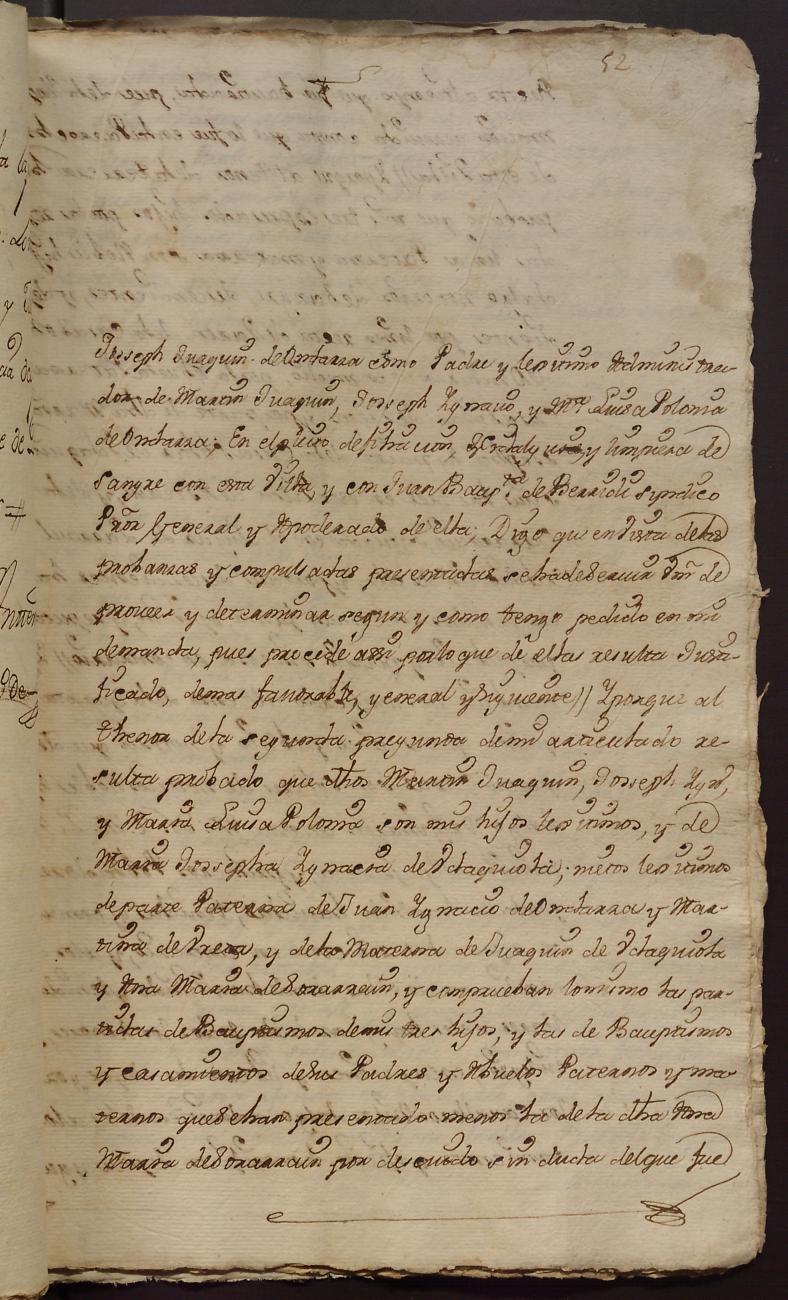 52
Josseph Juaquin de Ondarra como Padre y lexitimo Administra-
dor de Martin Juaquin, Josseph Ygnacio, y Mª Luisa Polonia
de Ondarra; En el pleito de filiacion, y limpieza de
Sangre con esta Villa, y con Juan Baupᵗᵃ de Berridi Syndico
Prõr General y Apoderado de ella; Digo que en vista de las
probanzas y compulsadas presentadas se ha de servir Vm̃ de
proveer y determinar segun y como tengo pedido en mi
demanda, pues procede assi por lo que de ellas resulta Justi-
ficado, demas favorable, general y siguiente // Yporque al
thenor de la segunda pregunta de mi articulado re-
sulta probado que dthos Martin Juaquin, Josseph Ygnº,
y Maria Luisa Polonia son mis hijos lexitimos, y de
Maria Jossepha Ygnacia de Vtaquiola; nietos lexitimos
de parte Paterna de Juan Ygnacio de Ondarra y Mar-
tina de , y de la Materna de Juaquin de Vtaquiola
y Ana Maria de Sorarrain, y comprueban lo mismo las par-
tidas de Bauptismos de mis tres hijos, y las de Bauptismos
y casamientos de sus Padres y Abuelos Paternos y ma-
ternos que se han presentado menos la de la dtha Ana
Maria de Sorarrain por descuido sin duda del que fue